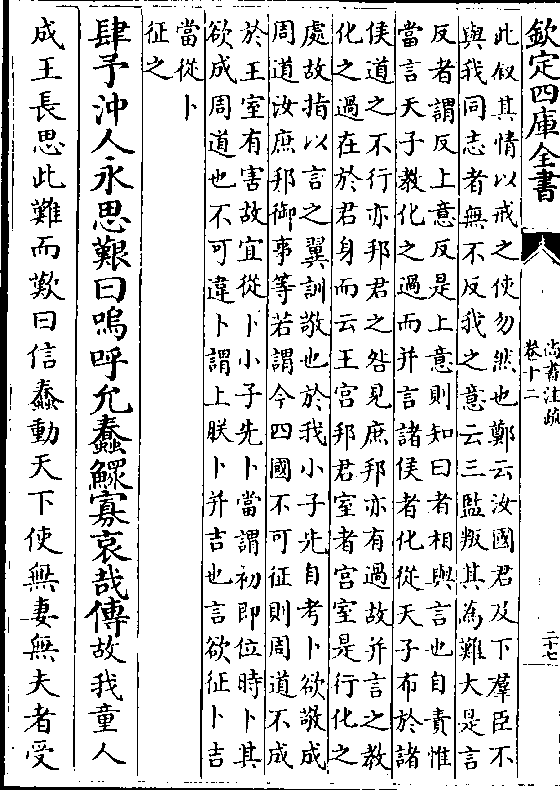 欽定四庫全書
尚書注疏
卷十二
二十七
此叙其情以戒之使勿然也鄭云汝國君及下羣臣不
與我同志者無不反我之意云三監叛其為難大是言
反者謂反上意反是上意則知曰者相與言也自責惟
當言天子教化之過而并言諸侯者化從天子布於諸
侯道之不行亦邦君之咎見庶邦亦有過故并言之教
化之過在於君身而云王宫邦君室者宫室是行化之
處故指以言之翼訓敬也於我小子先自考卜欲敬成
周道汝庶邦御事等若謂今四國不可征則周道不成
於王室有害故宜從卜小子先卜當謂初即位時卜其
欲成周道也不可違卜謂上朕卜并吉也言欲征卜吉
當從卜
征之
肆予沖人永思艱曰嗚呼允蠢鰥寡哀哉傳故我童人
成王長思此難而歎曰信蠢動天下使無妻無夫者受